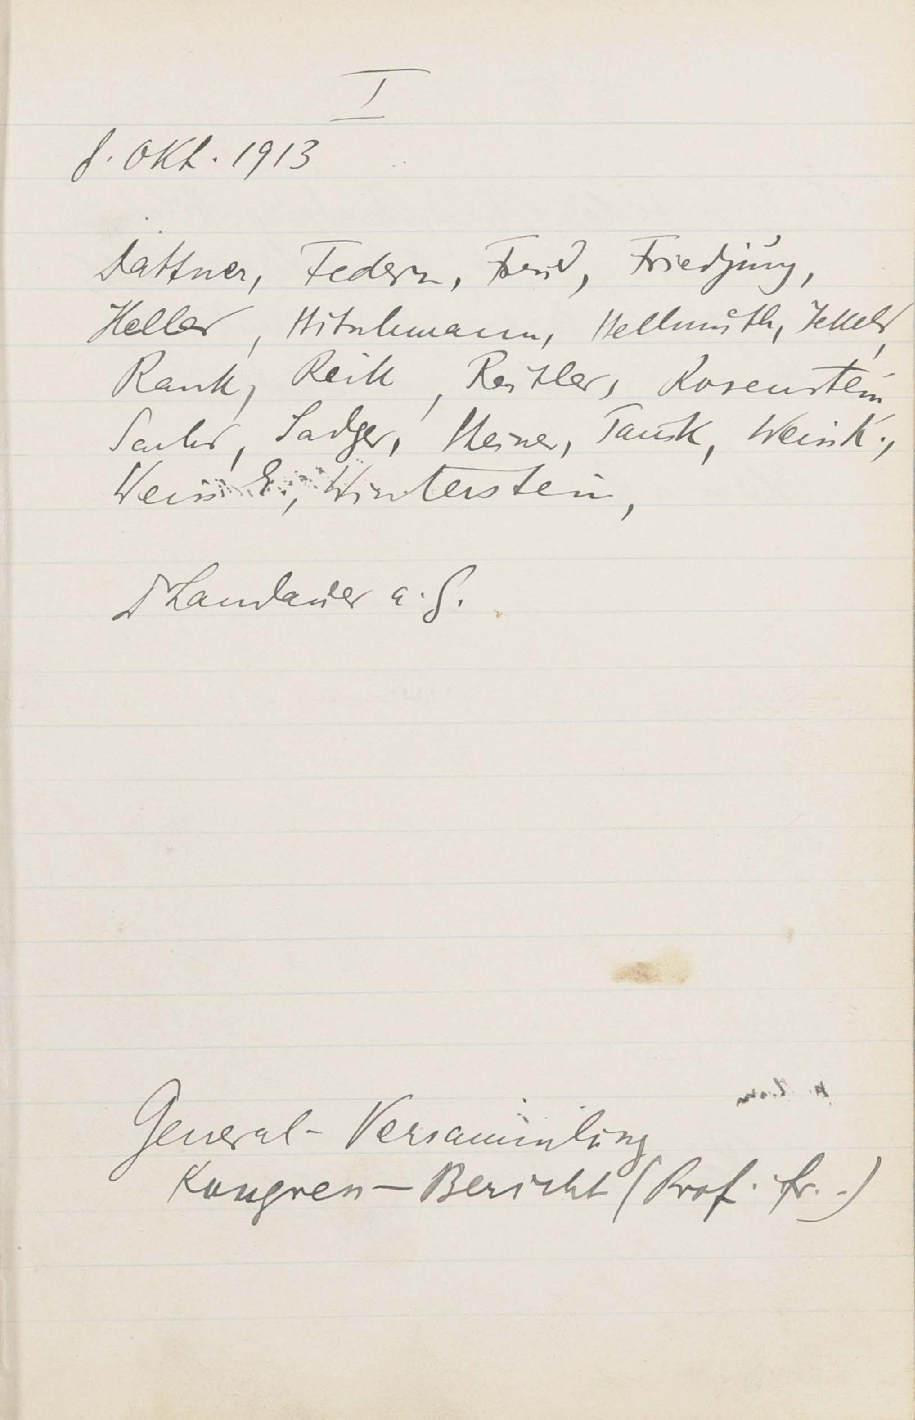 I
8. Okt. 1913
Dattner, Federn, Freud, Friedjung,
Heller, Hitschmann, Hellmuth, Jekels,
Rank, Reik, Reitler, Rosenstein
Sachs, Sadger, Steiner, Tausk, Weisk.,
Weiss E., Winterstein,
Dr Landauer a. G.
General-Versammlung
Kongress-Bericht (Prof. Fr.-)